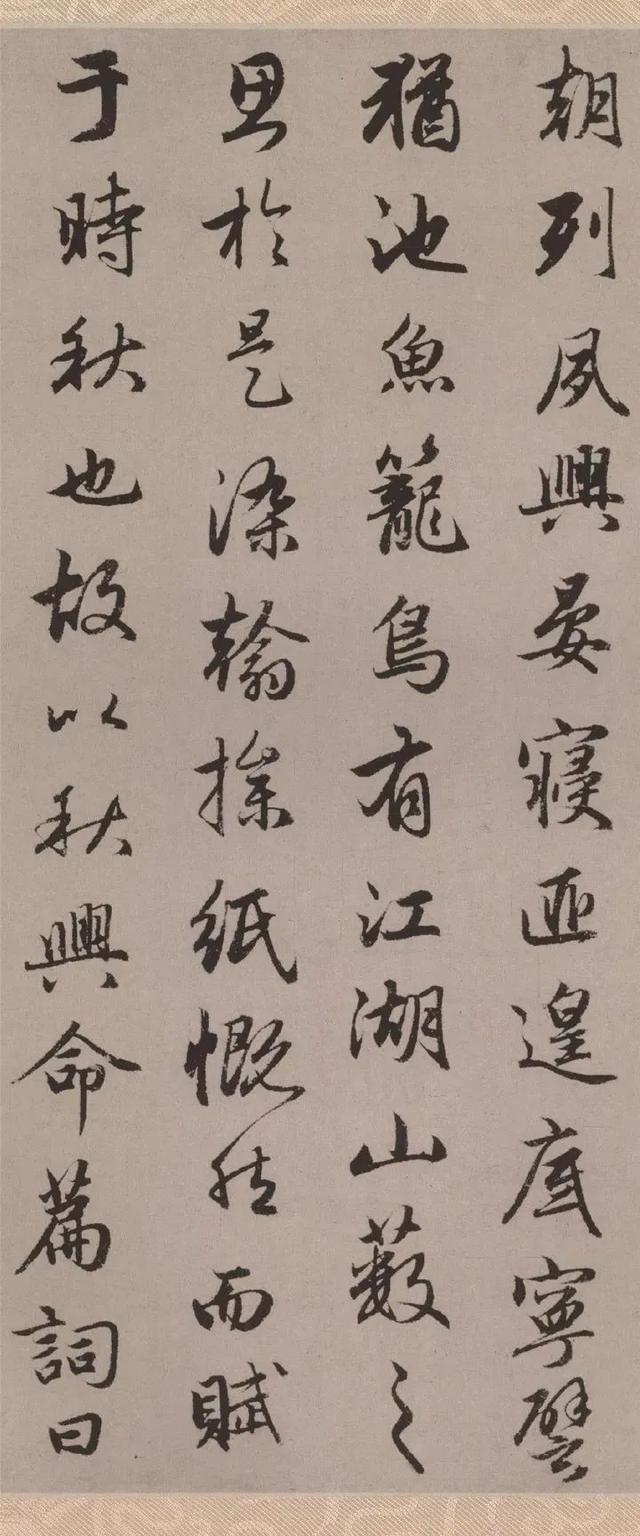 朝列夙興晏寢匪遑底寧譬
猶池魚籠鳥有江湖山藪之
思於是染翰操紙慨然而賦
于時秋也故以秋興命篇詞曰